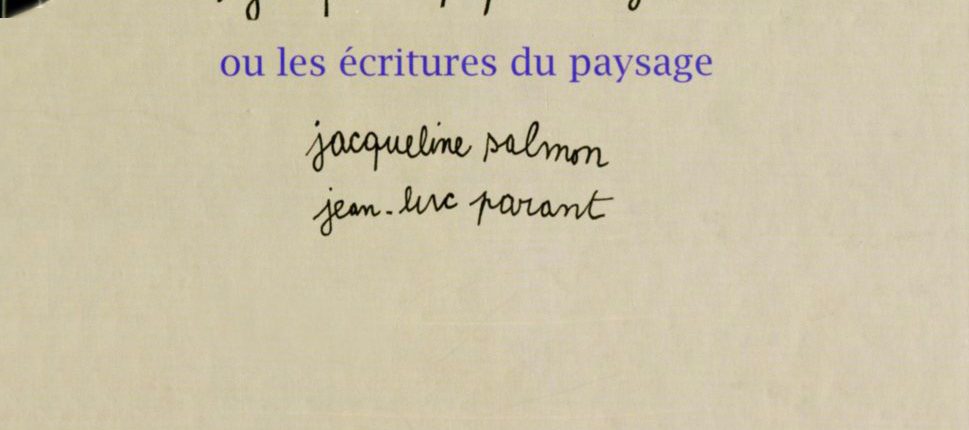 ou les écritures du paysage
jacqueline salmon
jean-luc parant